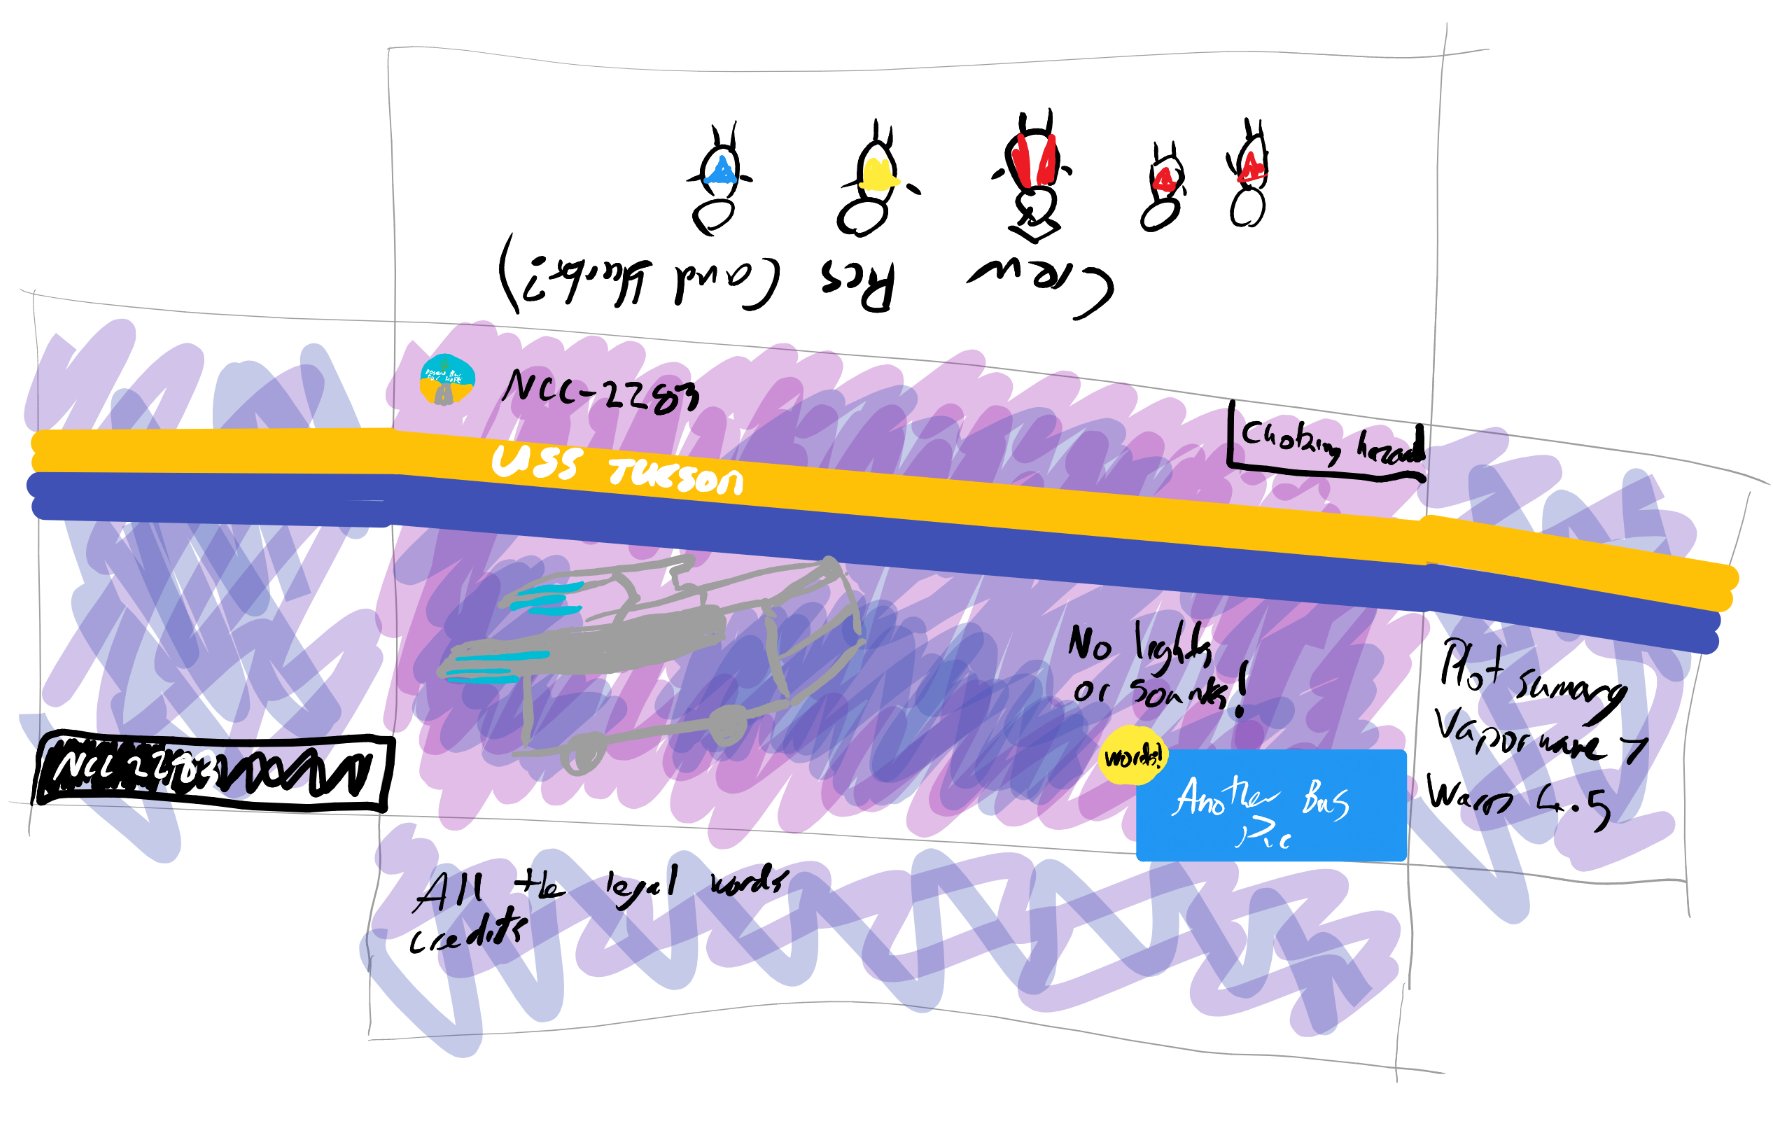 Crew Pics (and blurbs?)
NCC-2283
USS Tucson
Choking hazard
No lights
or sounds!
words!
Another Bus
Pic
Plot sumary
Vaporwave 7
Warp 4.5
NCC 2283
All the legal words
credits